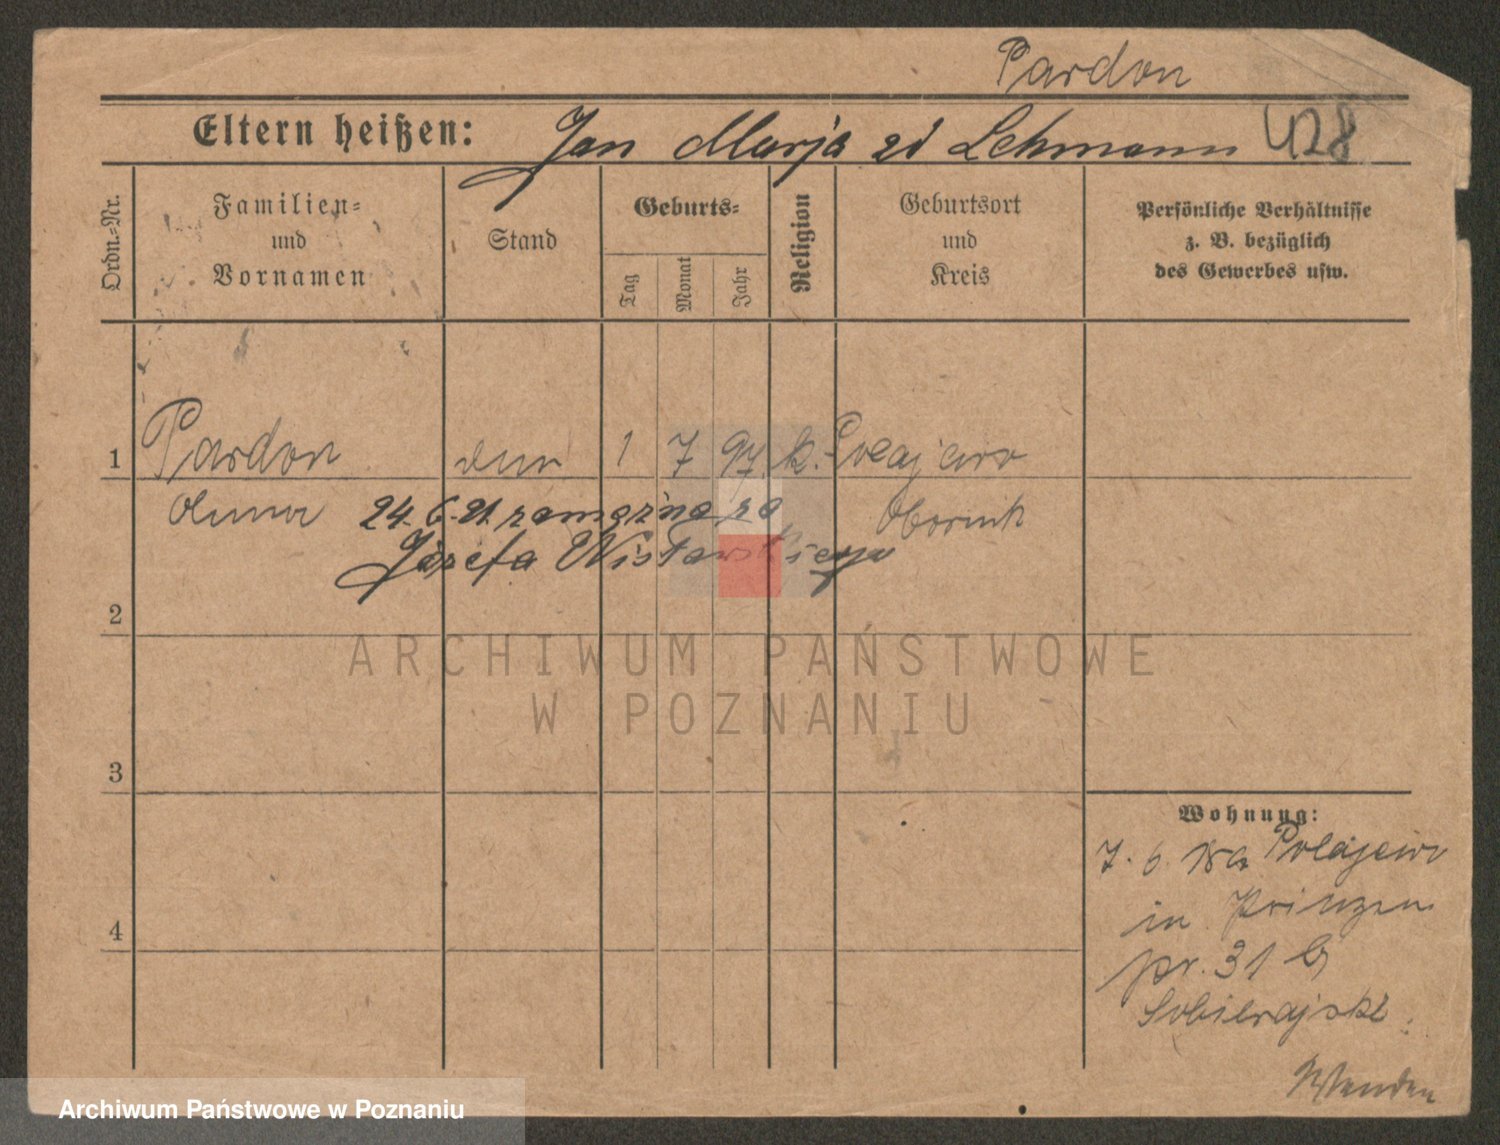 Pardon
Eltern heißen: Jan Marja zd Lehmann 428
Ordn.-Nr.
Familien-
und
Vornamen
Stand
Geburts-
Tag
Monat
Jahr
Religion
Geburtsort
und
Kreis
Persönliche Verhältnisse
z. B. bezüglich
des Gewerbes usw.
1 Pardon 1 7 97 k. Polajewo
24.6.21 zamężna za Obornik
Józefa Wistawskiego
2
ARCHIWUM PAŃSTWOWE
W POZNANIU
3
4
Wohnung:
7. 6. Polajewo
in Prinzen
pr. 31 b
Sobierajski
Wenden
Archiwum Państwowe w Poznaniu